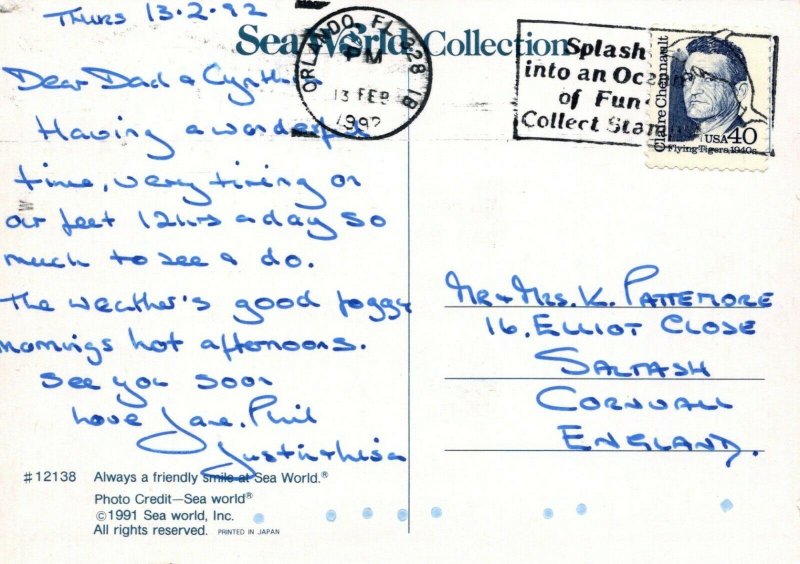 Thurs 13.2.92
Sea World Collection
Dear Dad & Cynthia
Having a wonderful
time, very tiring on
our feet 12hrs a day so
much to see & do.
The weather's good foggy
mornings hot afternoons.
See you soon
Love Jane. Phil
Justin & Lisa
#12138 Always a friendly smile at Sea World.®
Photo Credit—Sea world®
©1991 Sea world, Inc.
All rights reserved. PRINTED IN JAPAN
ORLANDO, FL 328 1B
PM
13 FEB
1992
Splash
into an Ocean
of Fun
Collect Stamps
Claire Chennault
USA 40
Flying Tigers, 1940s
Mr & Mrs. K. Pattemore
16. Elliot Close
Saltash
Cornwall
England.